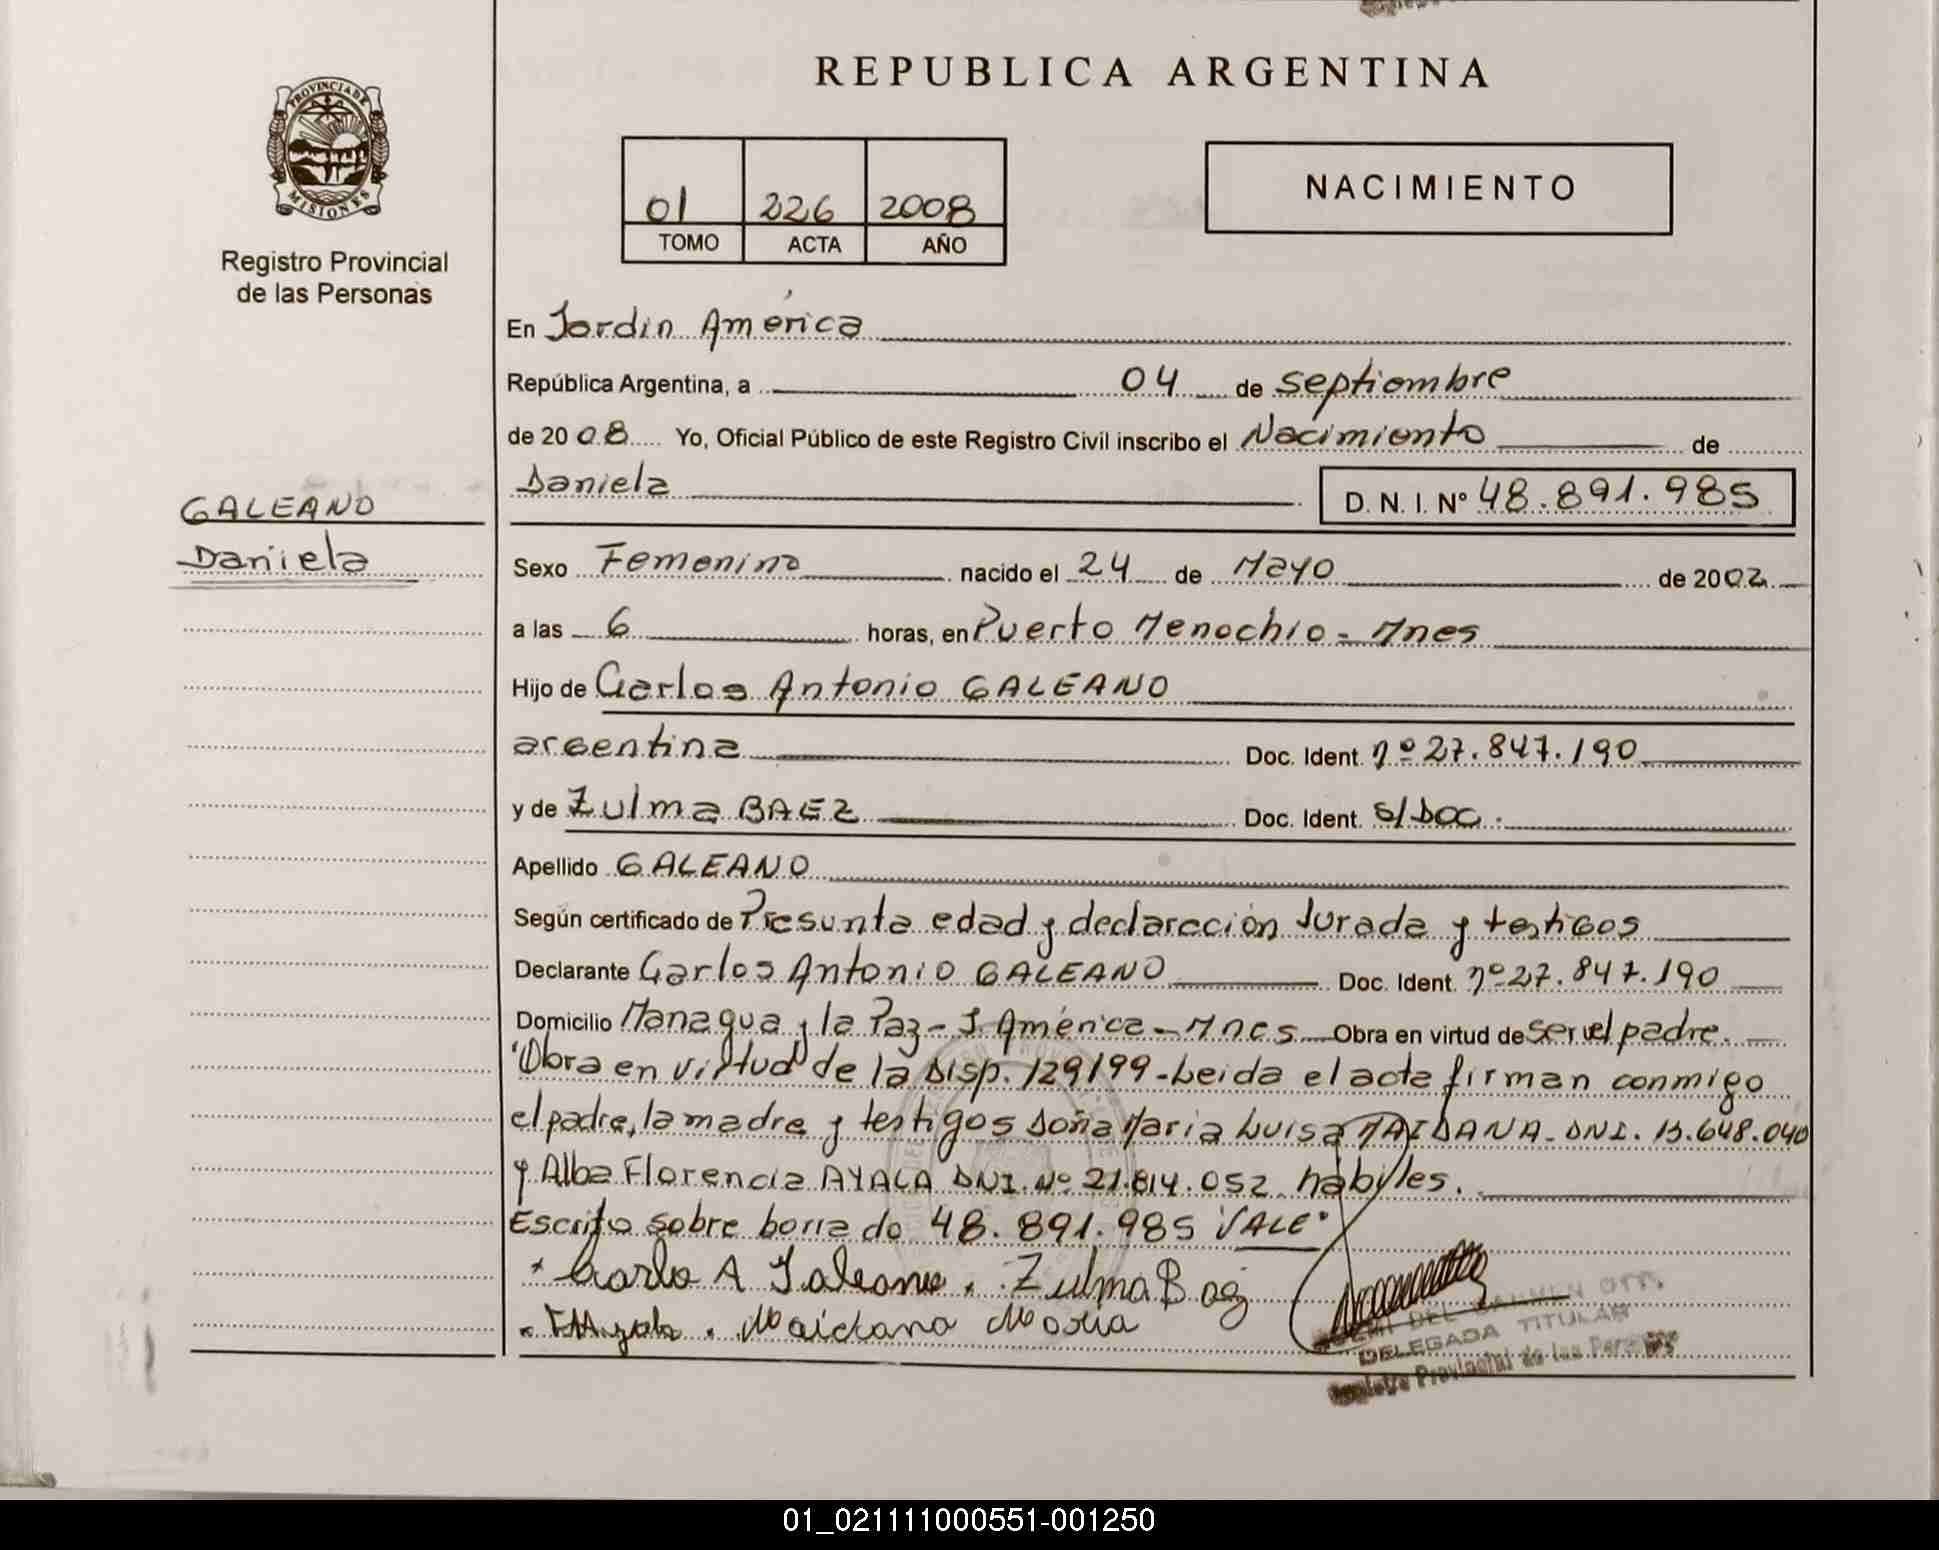 REPUBLICA ARGENTINA
PROVINCIA DE
MISIONES
Registro Provincial
de las Personas
01 226 2008
TOMO ACTA AÑO
NACIMIENTO
En Jardin América
República Argentina, a 04 de septiembre
de 2008 Yo, Oficial Público de este Registro Civil inscribo el Nacimiento de
Daniela D. N. I. Nº 48.891.985
GALEANO
Daniela
Sexo Femenino nacido el 24 de Mayo de 2002
a las 6 horas, en Puerto Menochio - Mnes
Hijo de Carlos Antonio GALEANO
argentina Doc. Ident. nº 27.847.190
y de Zulma BAEZ Doc. Ident. S/DOC.
Apellido GALEANO
Según certificado de Presunta edad y declaración Jurada y testigos
Declarante Carlos Antonio GALEANO Doc. Ident. nº 27.847.190
Domicilio Managua y la Paz - J. América - Mnes Obra en virtud de ser el padre.
"Obra en virtud de la Disp. 129/99 - Leida el acta firman conmigo
el padre, la madre y testigos Doña Maria Luisa MAIDANA - DNI. 13.648.040
y Alba Florencia AYALA DNI. Nº 21.814.052 habiles.
Escrito sobre borrado 48.891.985 VALE"
Carlo A Galeano. Zulma B
Maidana Maria
DELEGADA TITULAR
Registro Provincial de las Personas
01_021111000551-001250